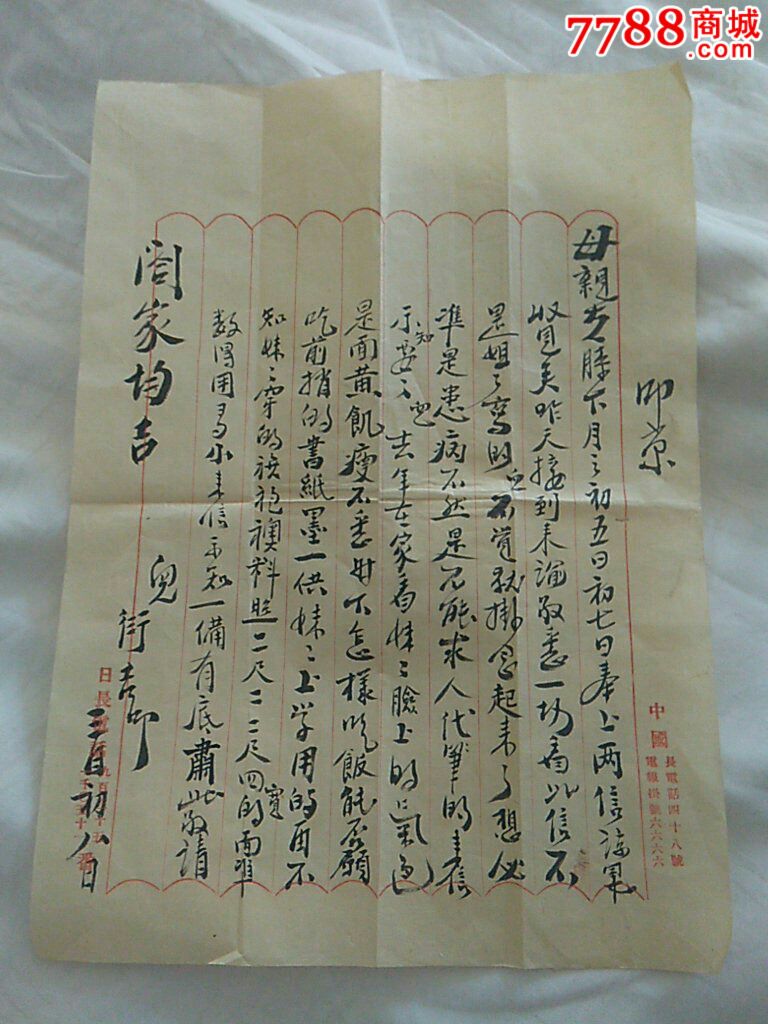 7788商城
.com
叩禀
母親大人膝下月之初五日初七日奉上两信諒早
收見矣昨天接到来諭敬悉一切看此信不
是姐々寫的不覺就掛念起来了想必
準是患病不然是不能求人代筆的来信
示知妥々去年在家看妹々臉上的氣色
是面黄飢瘦不悉母下怎樣吃飯能否願
吃前捎的書紙墨一供妹々上学用的用不
知妹々穿的袍襖料照二尺二二尺四的面寬準
数得用多少来信示知一備有底肅此敬請
閤家均吉
兒
叩
三月初八日
中國
長電話四十八號
電報掛號六六六六